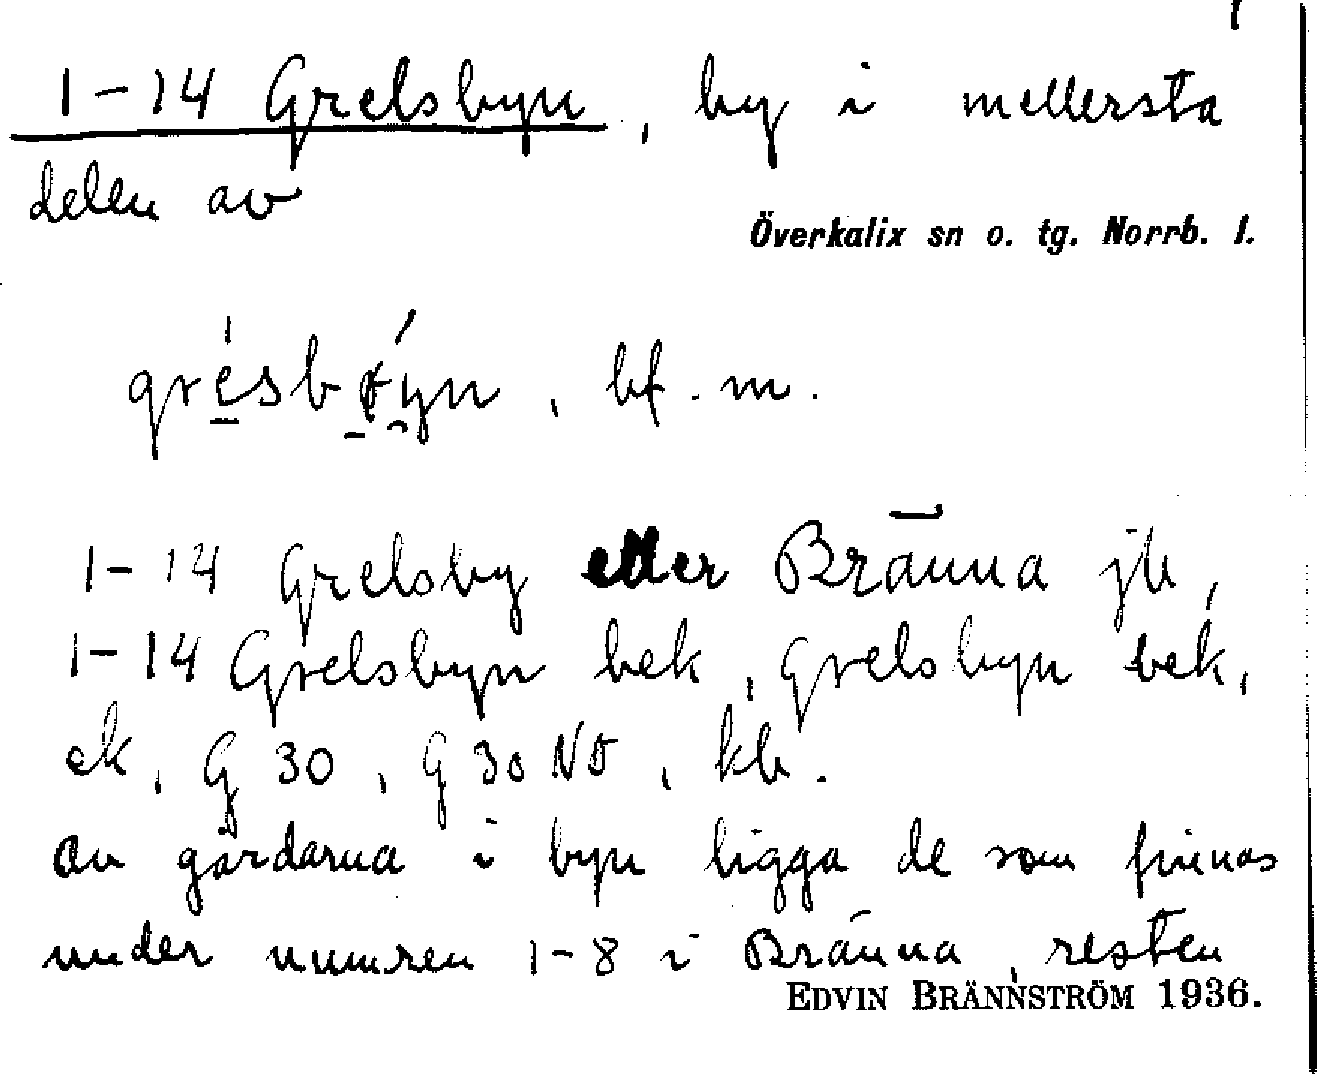 1-14 Grelsbyn, by i mellersta
delen av
Överkalix sn o. tg. Norrb. l.
bf. m.
1-14 Grelsby eller Bränna jb,
1-14 Grelsbyn bek, Grelsbyn bek,
ek, G 30, G 30 NO, kb.
Av gårdarna i byn ligga de som finnas
under numren 1-8 i Bränna, resten
EDVIN BRÄNNSTRÖM 1936.